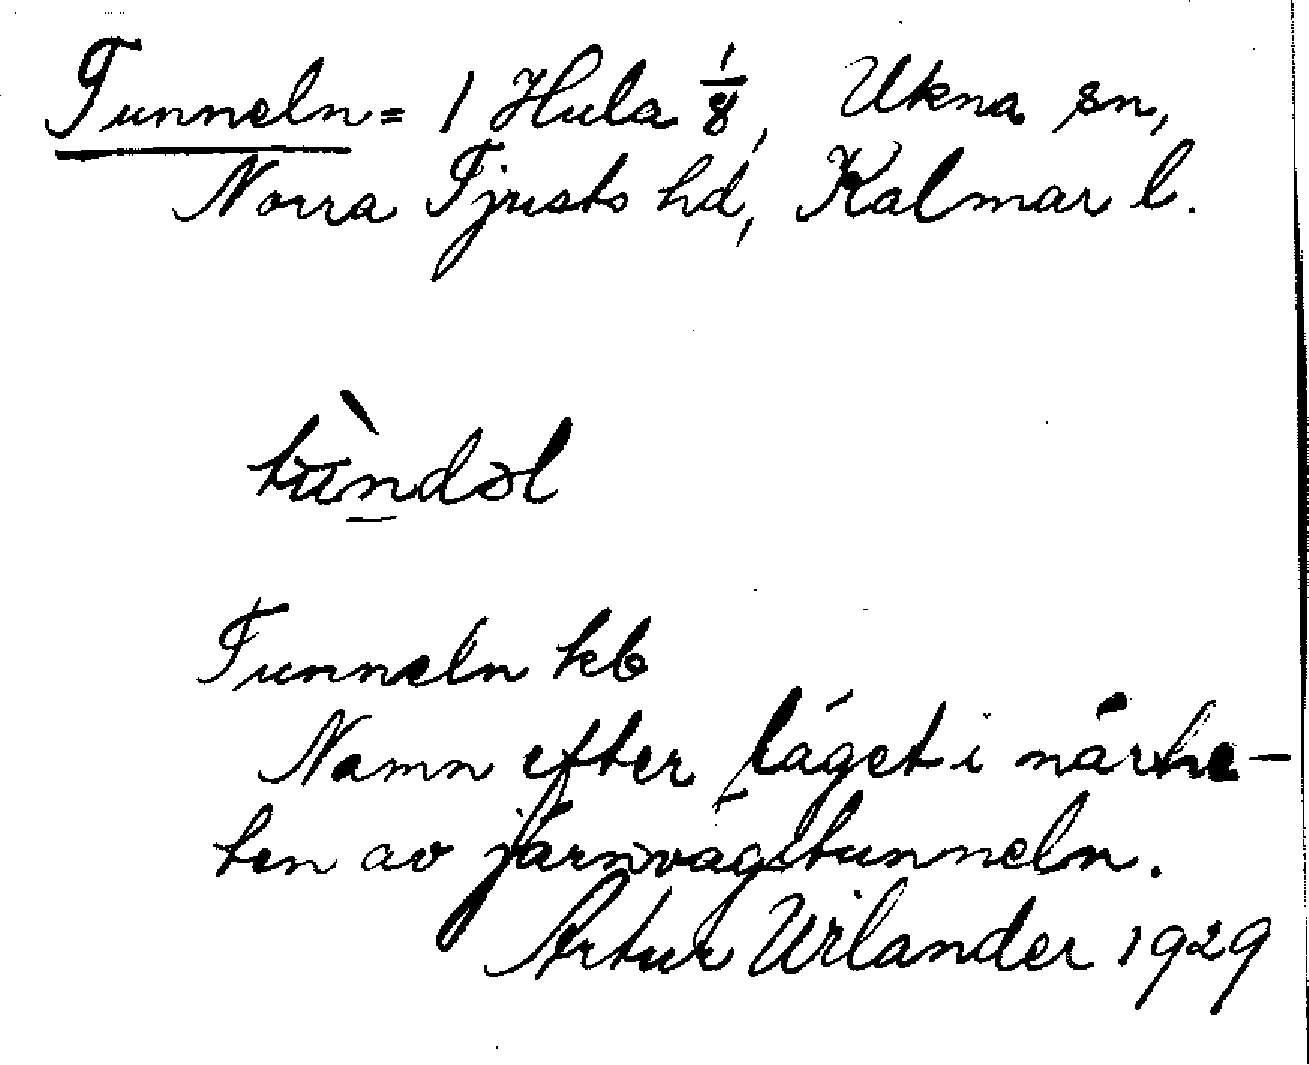 Tunneln = 1 Hula 1/8, Ukna sn,
Norra Tjusts hd, Kalmar l.
tùndəl
Tunneln kb
Namn efter läget i närhe-
ten av järnvägstunneln.
Artur Wilander 1929